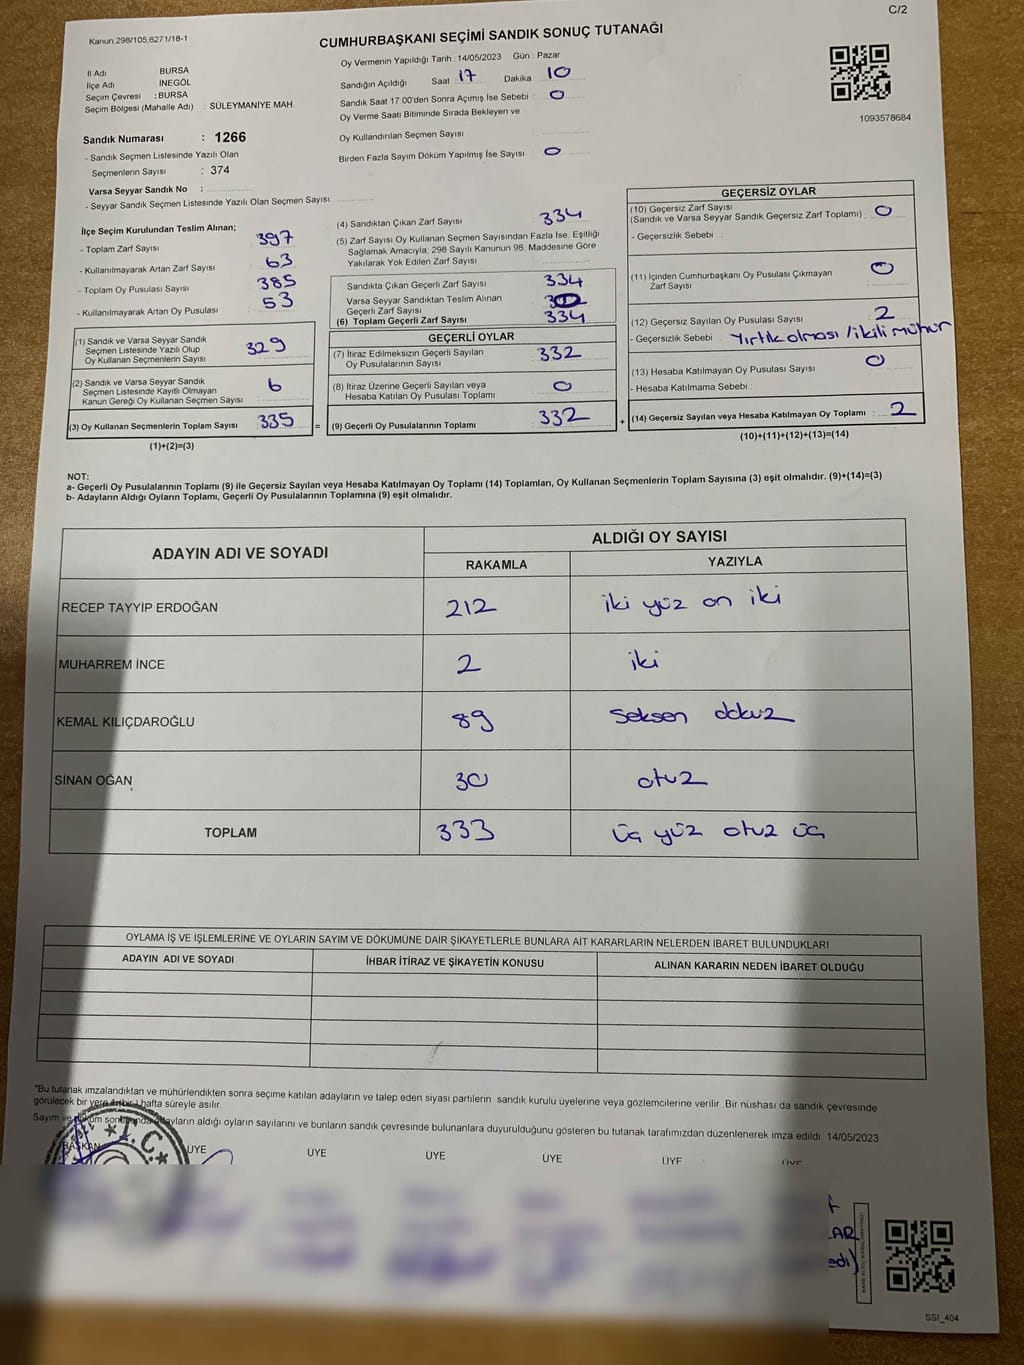 C/2
Kanun 298/105,6271/18-1
CUMHURBAŞKANI SEÇİMİ SANDIK SONUÇ TUTANAĞI
İl Adı BURSA
İlçe Adı İNEGÖL
Seçim Çevresi : BURSA
Seçim Bölgesi (Mahalle Adı) : SÜLEYMANİYE MAH.
Oy Vermenin Yapıldığı Tarih : 14/05/2023 Gün : Pazar
Sandığın Açıldığı Saat 17 Dakika 10
Sandık Saat 17:00'den Sonra Açımış İse Sebebi : 0
Oy Verme Saati Bitiminde Sırada Bekleyen ve
Oy Kullandırılan Seçmen Sayısı :
Birden Fazla Sayım Döküm Yapılmış İse Sayısı : 0
1093578684
Sandık Numarası : 1266
- Sandık Seçmen Listesinde Yazılı Olan
Seçmenlerin Sayısı : 374
Varsa Seyyar Sandık No :
- Seyyar Sandık Seçmen Listesinde Yazılı Olan Seçmen Sayısı:
İlçe Seçim Kurulundan Teslim Alınan;
- Toplam Zarf Sayısı 397
- Kullanılmayarak Artan Zarf Sayısı 63
- Toplam Oy Pusulası Sayısı 385
- Kullanılmayarak Artan Oy Pusulası 53
(1) Sandık ve Varsa Seyyar Sandık
Seçmen Listesinde Yazılı Olup
Oy Kullanan Seçmenlerin Sayısı 329
(2) Sandık ve Varsa Seyyar Sandık
Seçmen Listesinde Kayıtlı Olmayan
Kanun Gereği Oy Kullanan Seçmen Sayısı : 6
(3) Oy Kullanan Seçmenlerin Toplam Sayısı : 335
(1)+(2)=(3)
(4) Sandıktan Çıkan Zarf Sayısı 334
(5) Zarf Sayısı Oy Kullanan Seçmen Sayısından Fazla İse, Eşitliği
Sağlamak Amacıyla; 298 Sayılı Kanunun 98. Maddesine Göre
Yakılarak Yok Edilen Zarf Sayısı
Sandıkta Çıkan Geçerli Zarf Sayısı 334
Varsa Seyyar Sandıktan Teslim Alınan
Geçerli Zarf Sayısı
(6) Toplam Geçerli Zarf Sayısı 334
GEÇERLİ OYLAR
(7) İtiraz Edilmeksizin Geçerli Sayılan
Oy Pusulalarının Sayısı : 332
(8) İtiraz Üzerine Geçerli Sayılan veya
Hesaba Katılan Oy Pusulası Toplamı : 0
=
(9) Geçerli Oy Pusulalarının Toplamı : 332
+
GEÇERSİZ OYLAR
(10) Geçersiz Zarf Sayısı
(Sandık ve Varsa Seyyar Sandık Geçersiz Zarf Toplamı) : 0
- Geçersizlik Sebebi :
(11) İçinden Cumhurbaşkanı Oy Pusulası Çıkmayan
Zarf Sayısı : 0
(12) Geçersiz Sayılan Oy Pusulası Sayısı : 2
- Geçersizlik Sebebi : Yırtık olması / ikili mühür
(13) Hesaba Katılmayan Oy Pusulası Sayısı : 0
- Hesaba Katılmama Sebebi :
(14) Geçersiz Sayılan veya Hesaba Katılmayan Oy Toplamı : 2
(10)+(11)+(12)+(13)=(14)
NOT:
a- Geçerli Oy Pusulalarının Toplamı (9) ile Geçersiz Sayılan veya Hesaba Katılmayan Oy Toplamı (14) Toplamları, Oy Kullanan Seçmenlerin Toplam Sayısına (3) eşit olmalıdır. (9)+(14)=(3)
b- Adayların Aldığı Oyların Toplamı, Geçerli Oy Pusulalarının Toplamına (9) eşit olmalıdır.
ADAYIN ADI VE SOYADI
ALDIĞI OY SAYISI
RAKAMLA YAZIYLA
RECEP TAYYİP ERDOĞAN 212 iki yüz on iki
MUHARREM İNCE 2 iki
KEMAL KILIÇDAROĞLU 89 seksen dokuz
SİNAN OĞAN 30 otuz
TOPLAM 333 üç yüz otuz üç
OYLAMA İŞ VE İŞLEMLERİNE VE OYLARIN SAYIM VE DÖKÜMÜNE DAİR ŞİKAYETLERLE BUNLARA AİT KARARLARIN NELERDEN İBARET BULUNDUKLARI
ADAYIN ADI VE SOYADI İHBAR İTİRAZ VE ŞİKAYETİN KONUSU ALINAN KARARIN NEDEN İBARET OLDUĞU
*Bu tutanak imzalandıktan ve mühürlendikten sonra seçime katılan adayların ve talep eden siyasi partilerin sandık kurulu üyelerine veya gözlemcilerine verilir. Bir nüshası da sandık çevresinde
görülecek bir yere (bir) hafta süreyle asılır.
Sayım ve döküm sonunda adayların aldığı oyların sayılarını ve bunların sandık çevresinde bulunanlara duyurulduğunu gösteren bu tutanak tarafımızdan düzenlenerek imza edildi. 14/05/2023
BAŞKAN ÜYE ÜYE ÜYE ÜYE ÜYE ÜYE
T.C.
SSI_404